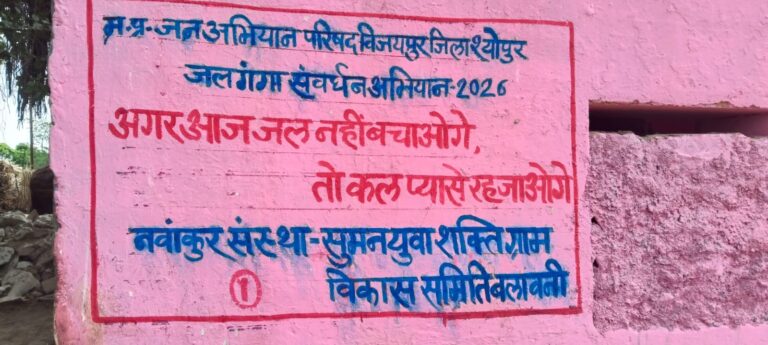 म.प्र-जन अभियान परिषद विजयपुर जिला श्योपुर
जल गंगा संवर्धन अभियान-2026
अगर आज जल नहीं बचाओगे,
तो कल प्यासे रह जाओगे
नवांकुर संस्था-सुमन युवा शक्ति ग्राम
① विकास समिति बलावनी